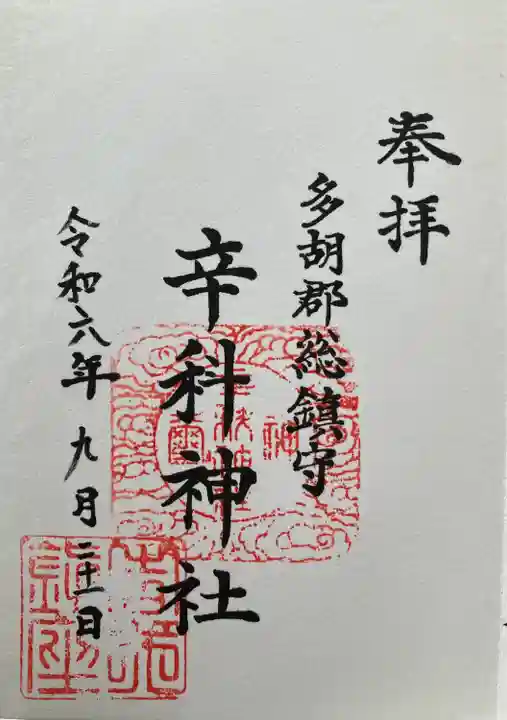 奉拝
多胡郡総鎮守
辛科神社
令和六年九月二十一日